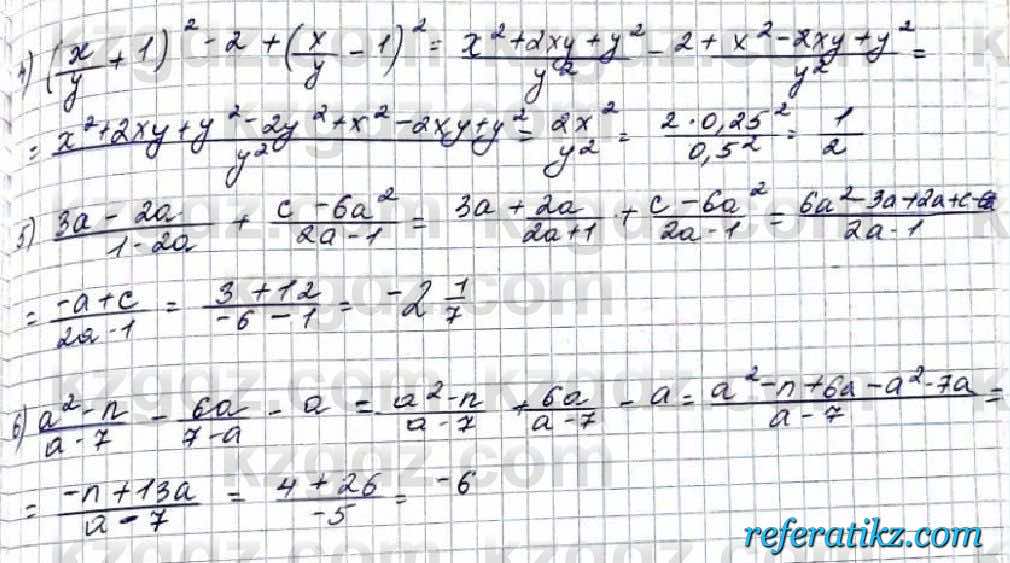 4) (x/y + 1)² - 2 + (x/y - 1)² = (x² + 2xy + y²)/y² - 2 + (x² - 2xy + y²)/y² =
= (x² + 2xy + y² - 2y² + x² - 2xy + y²)/y² = 2x²/y² = (2·0,25²)/0,5² = 1/2
5) (3a - 2a)/(1 - 2a) + (c - 6a²)/(2a - 1) = 3a + 2a/(2a + 1) + (c - 6a²)/(2a - 1) = (6a² - 3a + 2a + c - 6)/(2a - 1)
= (-a + c)/(2a - 1) = (3 + 12)/(-6 - 1) = -2 1/7
6) (a² - n)/(a - 7) - 6a/(7 - a) - a = (a² - n)/(a - 7) + 6a/(a - 7) - a = (a² - n + 6a - a² - 7a)/(a - 7) =
= (-n + 13a)/(a - 7) = (4 + 26)/(-5) = -6
kzgdz.com
referatikz.com